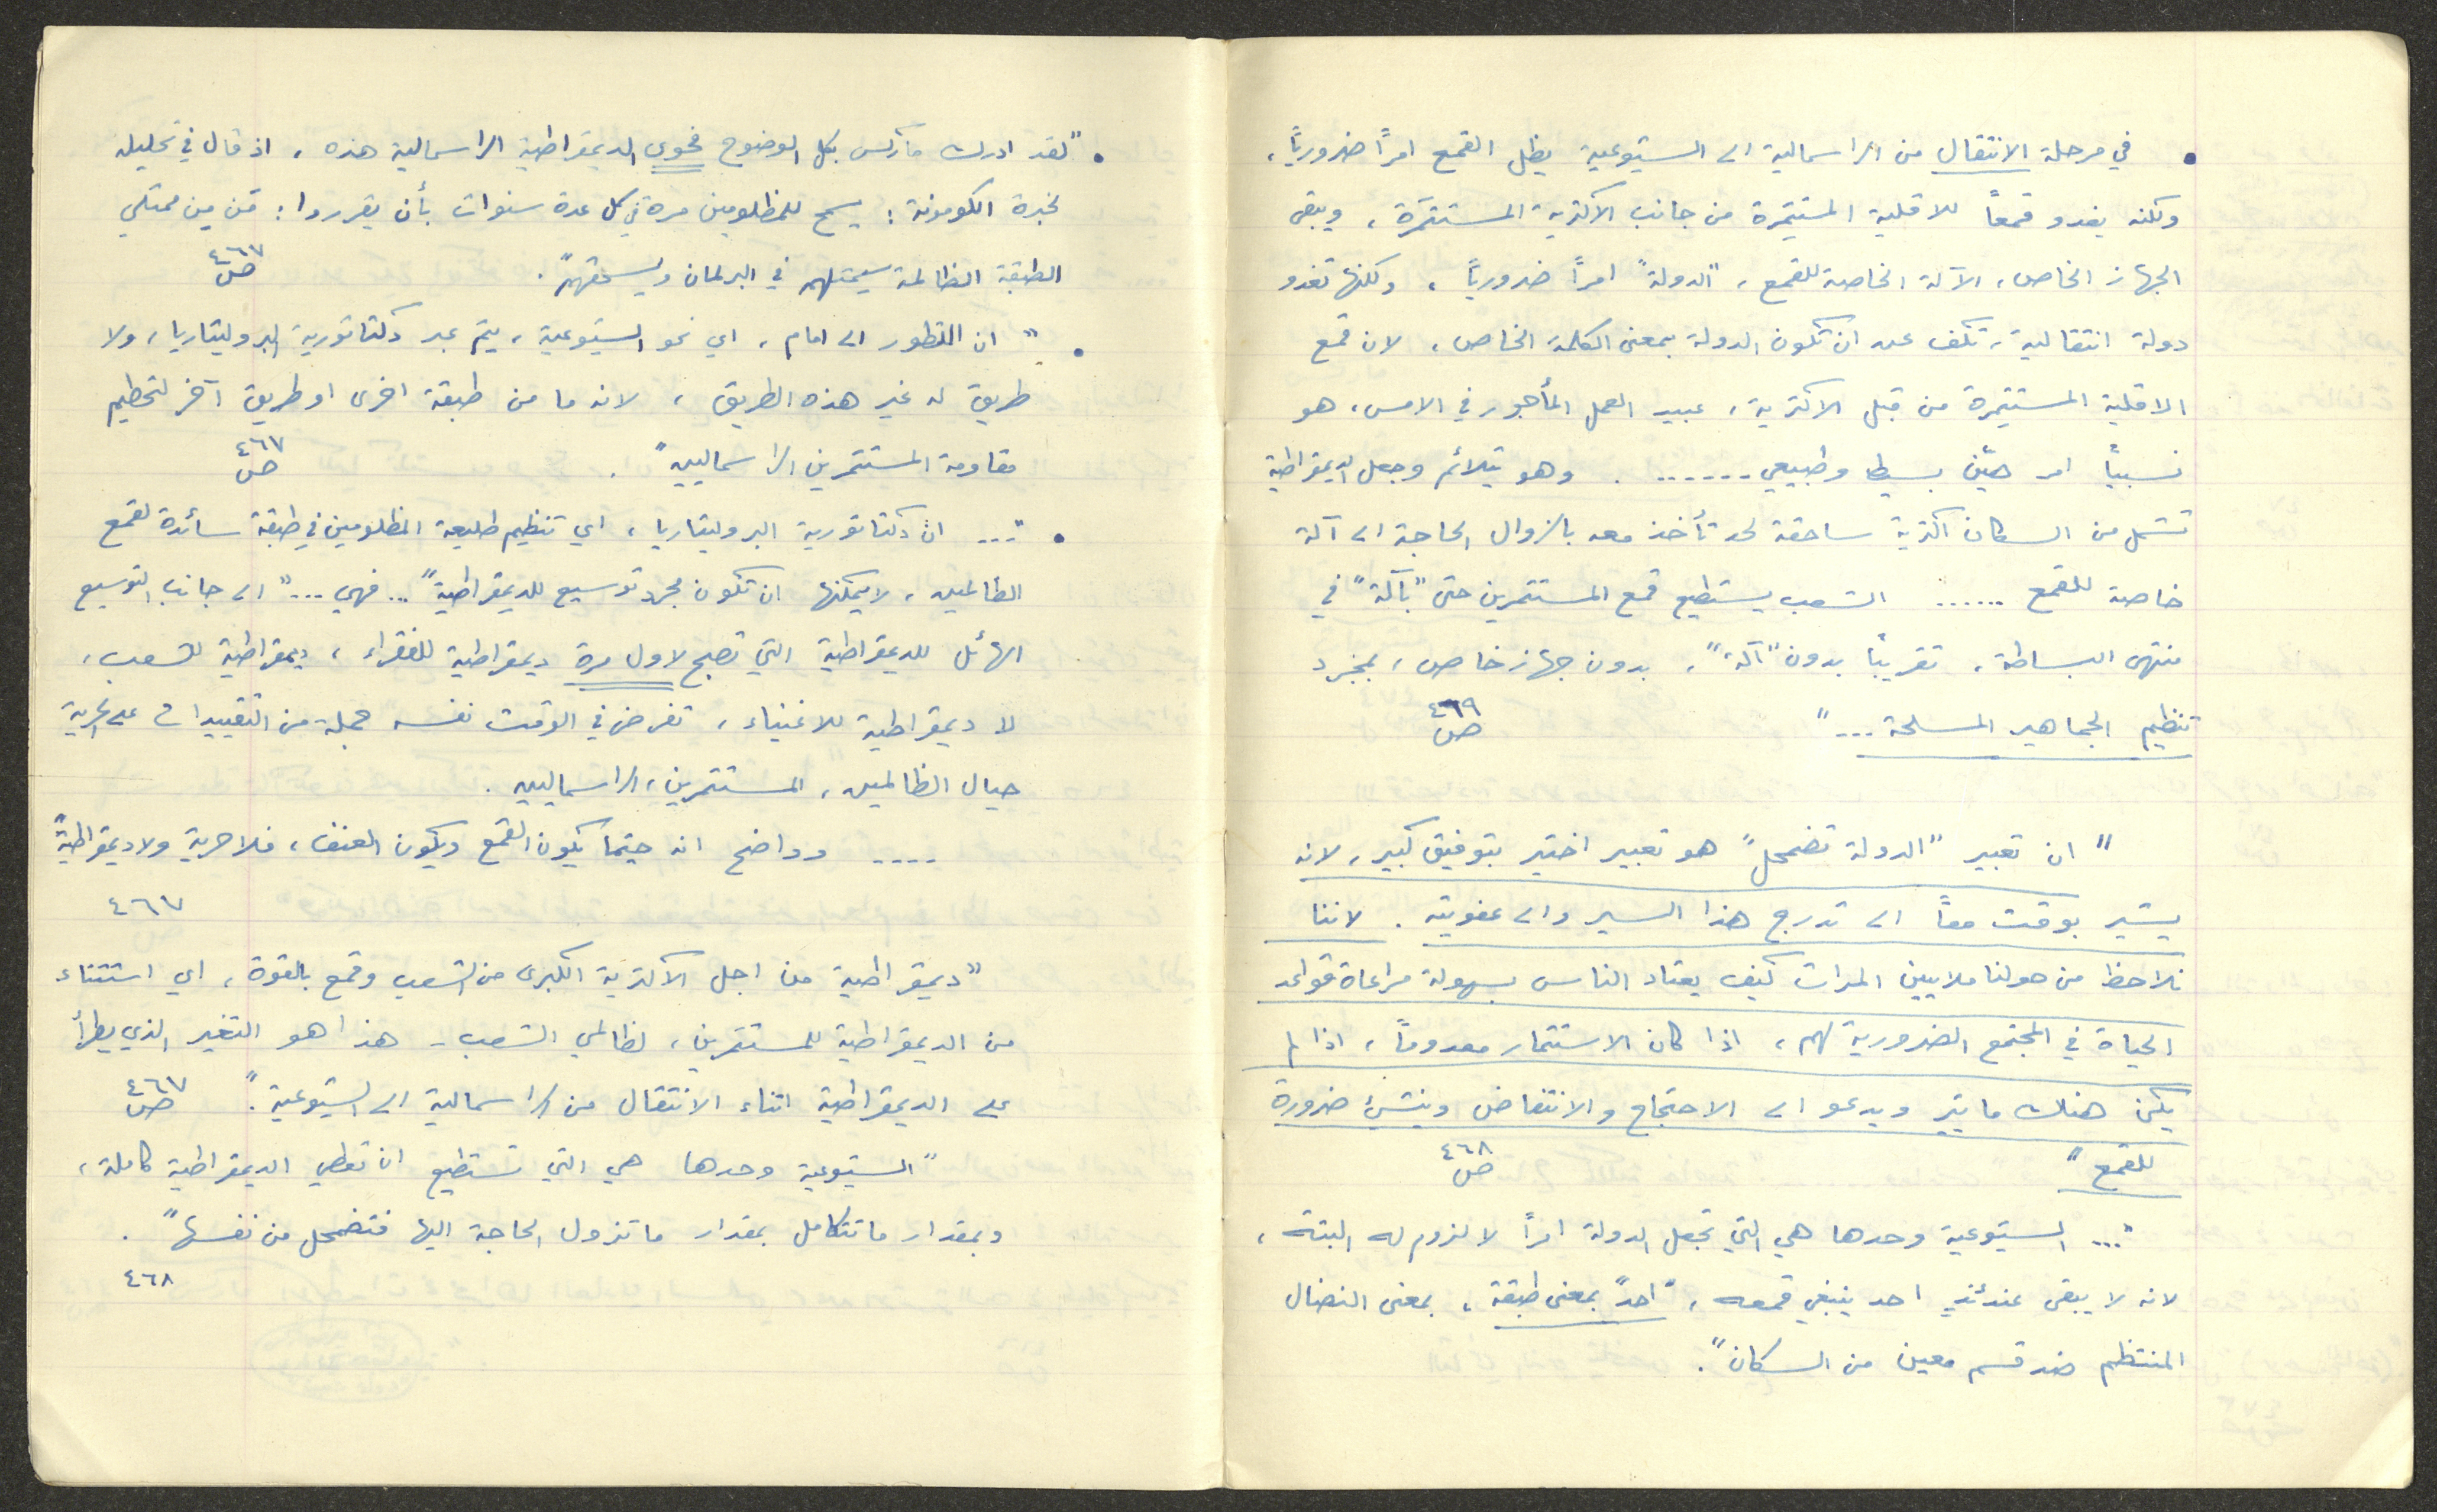 • في مرحلة الانتقال من الراسمالية الى الشيوعية يظل القمع امراً ضرورياً،
ولكنه يغدو قمعاً للاقلية المستثمِرة من جانب الاكثرية المستثمَرة، ويبقى
الجهاز الخاص، الآلة الخاصة للقمع، "الدولة" امراً ضرورياً، ولكنها تغدو
دولة انتقالية، تكف عن ان تكون الدولة بمعنى الكلمة الخاص، لان قمع
الاقلية المستثمِرة من قبل الاكثرية، عبيد العمل المأجور في الامس، هو
نسبياً امر هيّن بسيط وطبيعي ....... . وهو يتلائم وجعل الديمقراطية
تشمل من السكان اكثرية ساحقة لحد تأخذ معه بالزوال الحاجة الى آلة
خاصة للقمع ...... الشعب يستطيع قمع المستثمرين حتى "بآلة" في
منتهى البساطة، تقريباً بدون "آلة"، بدون جهاز خاص، بمجرد
تنظيم الجماهير المسلحة ..." ص ٤٦٩
" ان تعبير "الدولة تضمحل" هو تعبير اختير بتوفيق كبير، لانه
يشير بوقت معاً الى تدرج هذا السير والى عفويته. لاننا
نلاحظ من حولنا ملايين المرات كيف يعتاد الناس بسهولة مراعاة قواعد
الحياة في المجتمع الضرورية لهم، اذا كان الاستثمار معدوماً، اذا لم
يكن هناك ما يثير ويدعو الى الاحتجاج والانتفاض وينشئ ضرورة
للقمع" ص ٤٦٨
"... الشيوعية وحدها هي التي تجعل الدولة امراً لا لزوم له البتة،
لانه لا يبقى عندئذٍ احد ينبغي قمعه، "احد" بمعنى طبقة، بمعنى النضال
المنتظم ضد قسم معين من السكان".
• "لقد ادرك ماركس بكل الوضوح فحوى الديمقراطية الراسمالية هذه، اذ قال في تحليله
لخبرة الكومونة: يسمح للمظلومين مرة في كل عدة سنوات بأن يقرروا: مَن مِن ممثلي
الطبقة الظالمة سيمثلهم في البرلمان ويسحقهم". ص ٤٦٧
• " ان التطور الى امام، اي نحو الشيوعية، يتم عبر دكتاتورية البروليتاريا، ولا
طريق له غير هذه الطريق، لانه ما من طبقة اخرى او طريق آخر لتحطيم
مقاومة المستثمرين الراسماليين". ص ٤٦٧
• "... ان دكتاتورية البروليتاريا، اي تنظيم طليعة المظلومين في طبقة سائدة لقمع
الظالمين، لا يمكنها ان تكون مجرد توسيع للديمقراطية" .. فهي ..." الى جانب التوسيع
الهائل للديمقراطية التي تصبح لاول مرة ديمقراطية للفقراء، ديمقراطية للشعب،
لا ديمقراطية للاغنياء، تفرض في الوقت نفسه جملة من التقييدات على الحرية
حيال الظالمين، المستثمرين، الراسماليين.
.... وواضح انه حيثما يكون القمع ويكون العنف، فلا حرية ولا ديمقراطية"
٤٦٧
"ديمقراطية من اجل الاكثرية الكبرى من الشعب وقمع بالقوة، اي استثناء
من الديمقراطية للمستثمرين، لظالمي الشعب - هذا هو التغير الذي يطرأ
على الديمقراطية اثناء الانتقال من الراسمالية الى الشيوعية". ص ٤٦٧
"الشيوعية وحدها هي التي تستطيع ان تعطي الديمقراطية كاملة،
وبمقدار ما تتكامل بمقدار ما تزول الحاجة اليها فتضمحل من نفسها".
٤٦٨